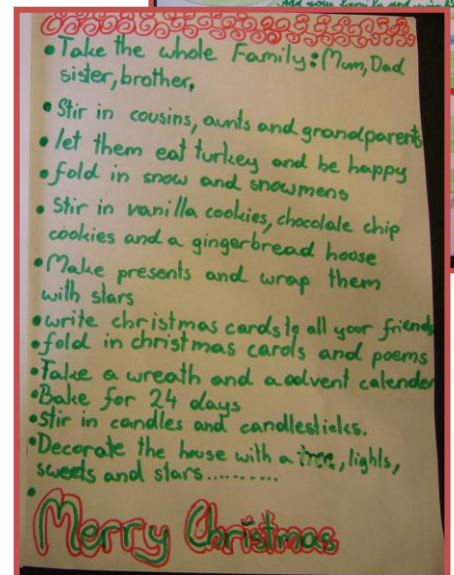 Add your family and
• Take the whole Family: Mum, Dad
sister, brother,
• Stir in cousins, aunts and grandparents
• let them eat turkey and be happy
• fold in snow and snowmens
• Stir in vanilla cookies, chocolate chip
cookies and a gingerbread house
• Make presents and wrap them
with stars
• write christmas cards to all your friends
• fold in christmas carols and poems
• Take a wreath and a advent calender
• Bake for 24 days
• Stir in candles and candlesticks.
• Decorate the house with a tree, lights,
sweets and stars..........
•
Merry Christmas